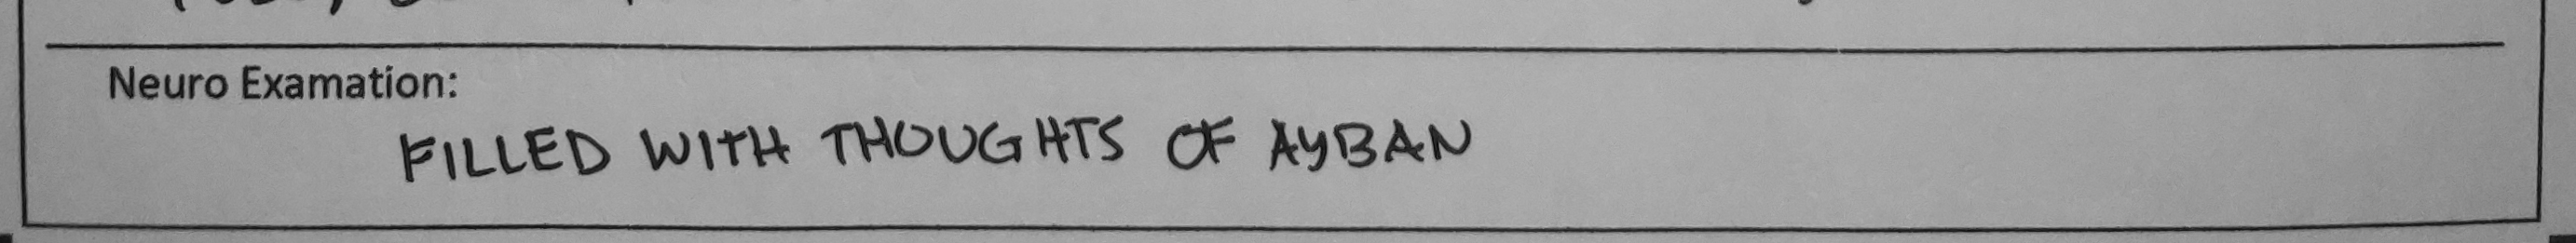 Neuro Examation:
FILLED WITH THOUGHTS OF AYBAN